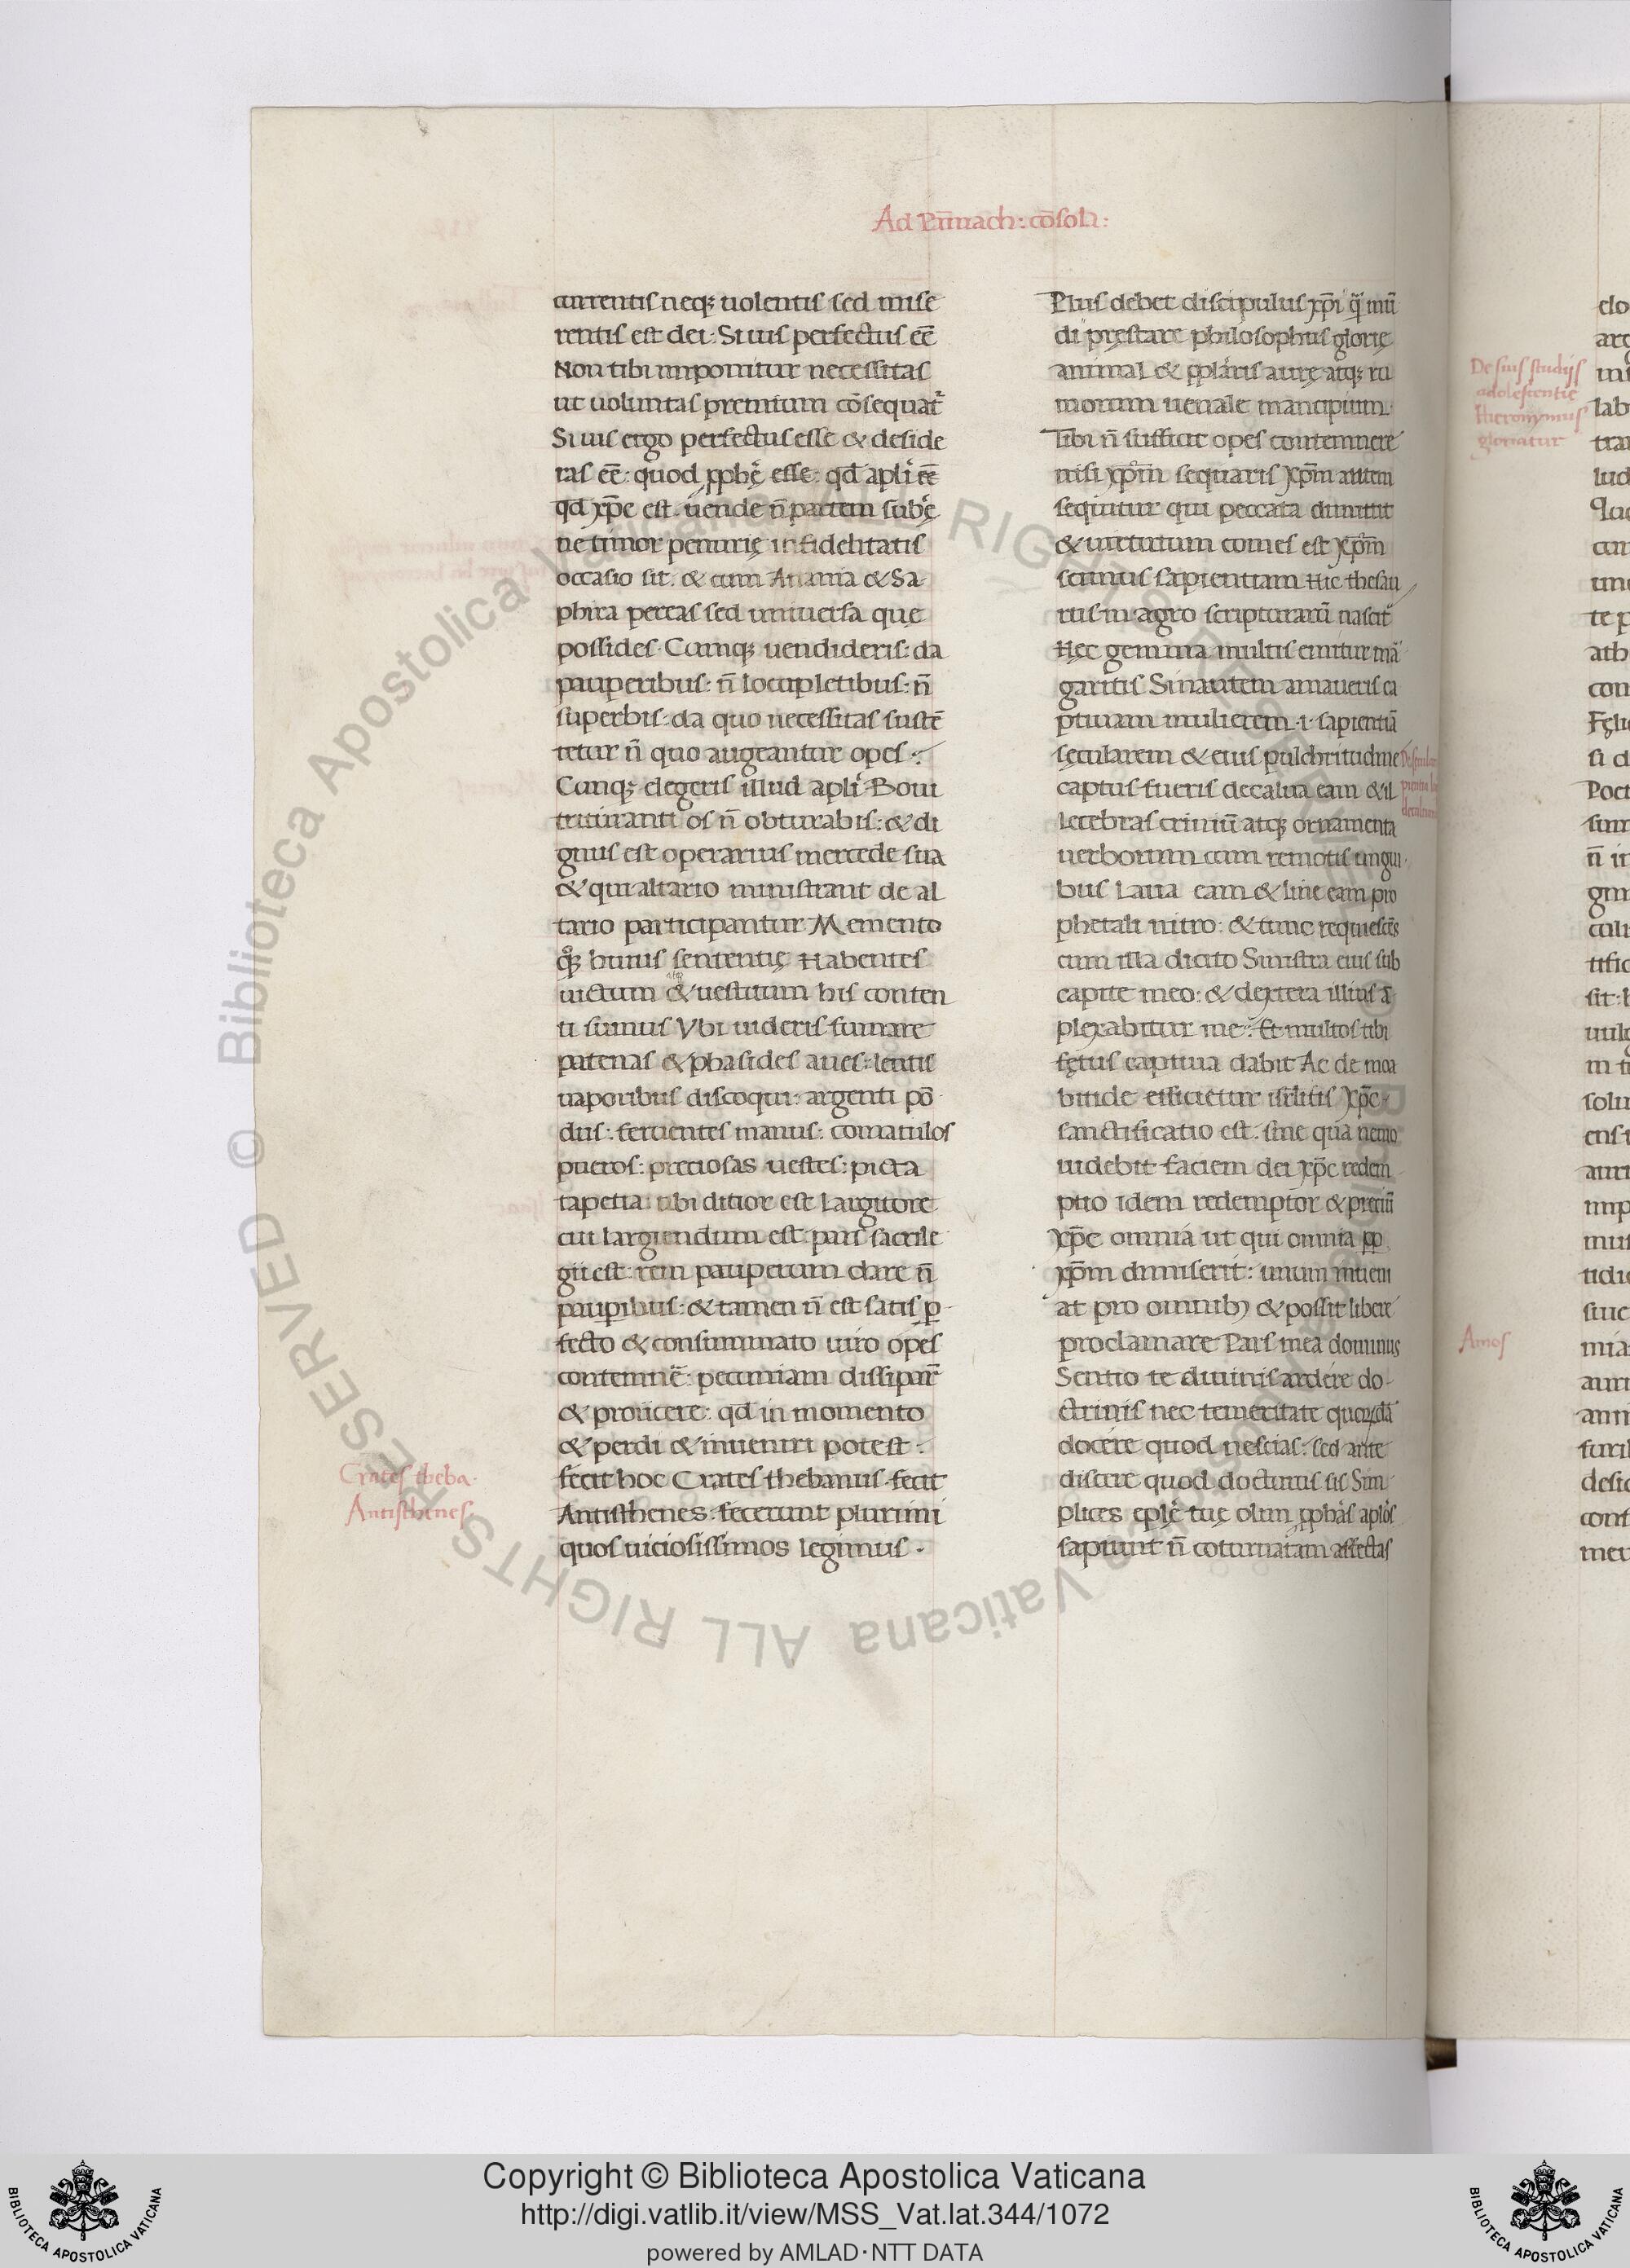 Ad Pāmach: cōsol:
currentis neqꝫ uolentis sed mise
rentis est dei: Si uis perfectus eē
Non tibi imponitur necessitas
ut uoluntas premium cōsequat͛
Si uis ergo perfectus esse & deside
ras eē: quod ꝓphę esse: qd apl̓i eē
qd xp̄c est. uende n̄ partem subę
ne timor penurię infidelitatis
occasio sit. & cum Anania & Sa
phira pereas sed uniuersa que
possides. Cumqꝫ uendideris: da
pauperibus: n̄ locupletibus: n̄
superbis: da quo necessitas sustē
tetur n̄ quo augeantur opes:
Cumqꝫ elegeris illud apl̓i Boui
trituranti os n̄ obturabis: & di
gnus est operarius mercede sua
& qui altario ministrant de al
tario participantur. Memento
qͦqꝫ huius sententię Habentes
uictum & uestitum his conten
ti sumus Vbi uideris fumare
patenas & phasides aues: lentis
uaporibus discoqui: argenti pō
dus: feruentes manus: comatulos
pueros: preciosas uestes: picta
tapetia: ubi ditior est largitore
cui largiendum est: pars sacrile
gii est: rem pauperum dare n̄
pauꝑibus: & tamen n̄ est satis ꝑ
fecto & consummato uiro opes
contemnē: pecuniam dissipar̄
& proiicere: qd in momento
& perdi & inueniri potest:
fecit hoc Crates thebanus. fecit
Antisthenes: fecerunt plurimi
quos uiciosissimos legimus.
Crates theba.
Antisthenes.
Plus debet discipulus xp̄i qͣ mū
di pręstare philosophus glorię
animal & ꝓplaris aurę atqꝫ ru
morum uenale mancipium.
Tibi n̄ sufficit opes contemnere
nisi xp̄m sequaris Xp̄m autem
sequitur qui peccata dimittit
& uirtutum comes est Xp̄m
scimus sapientiam Hic thesau
rus in agro scripturarū nascit͛
Hęc gemma multis emitur mā
garitis Sin autem amaueris ca
ptiuam mulierem .i. sapientiā
sęcularem & eius pulchritudine
captus fueris decalua eam & il
lecebras criniū atqꝫ ornamenta
uerborum cum remotis ungui
bus Laua eam & line eam pro
phetali nitro: & tunc requiescēs
cum illa dicito Sinistra eius sub
capite meo: & dextera illius ā
plexabitur me: Et multos tibi
fętus captiua dabit Ac de moa
bitide efficietur isrl̓itis Xp̄c
sanctificatio est: sine qua nemo
uidebit faciem dei Xp̄c redem
ptio idem redemptor & preciū
Xp̄c omnia ut qui omnia ꝓp
xp̄m dimiserit: unum inueni
at pro omnibꝫ & possit libere
proclamare Pars mea dominus
Sentio te diuinis ardere do
ctrinis nec temeritate quorūdā
docere quod nescias: sed ante
discere quod docturus sis Sim
plices ep̄lę tuę olim ꝓphas apl̓os
sapiunt n̄ coturnatam affectas
De sęcular
De suis studijs
adolescentię
Hieronymus
gloriatur
Amos
Copyright © Biblioteca Apostolica Vaticana
http://digi.vatlib.it/view/MSS_Vat.lat.344/1072
powered by AMLAD·NTT DATA
BIBLIOTECA APOSTOLICA VATICANA
BIBLIOTECA APOSTOLICA VATICANA
© Biblioteca Apostolica Vaticana ALL RIGHTS RESERVED
© Biblioteca Apostolica Vaticana ALL RIGHTS RESERVED